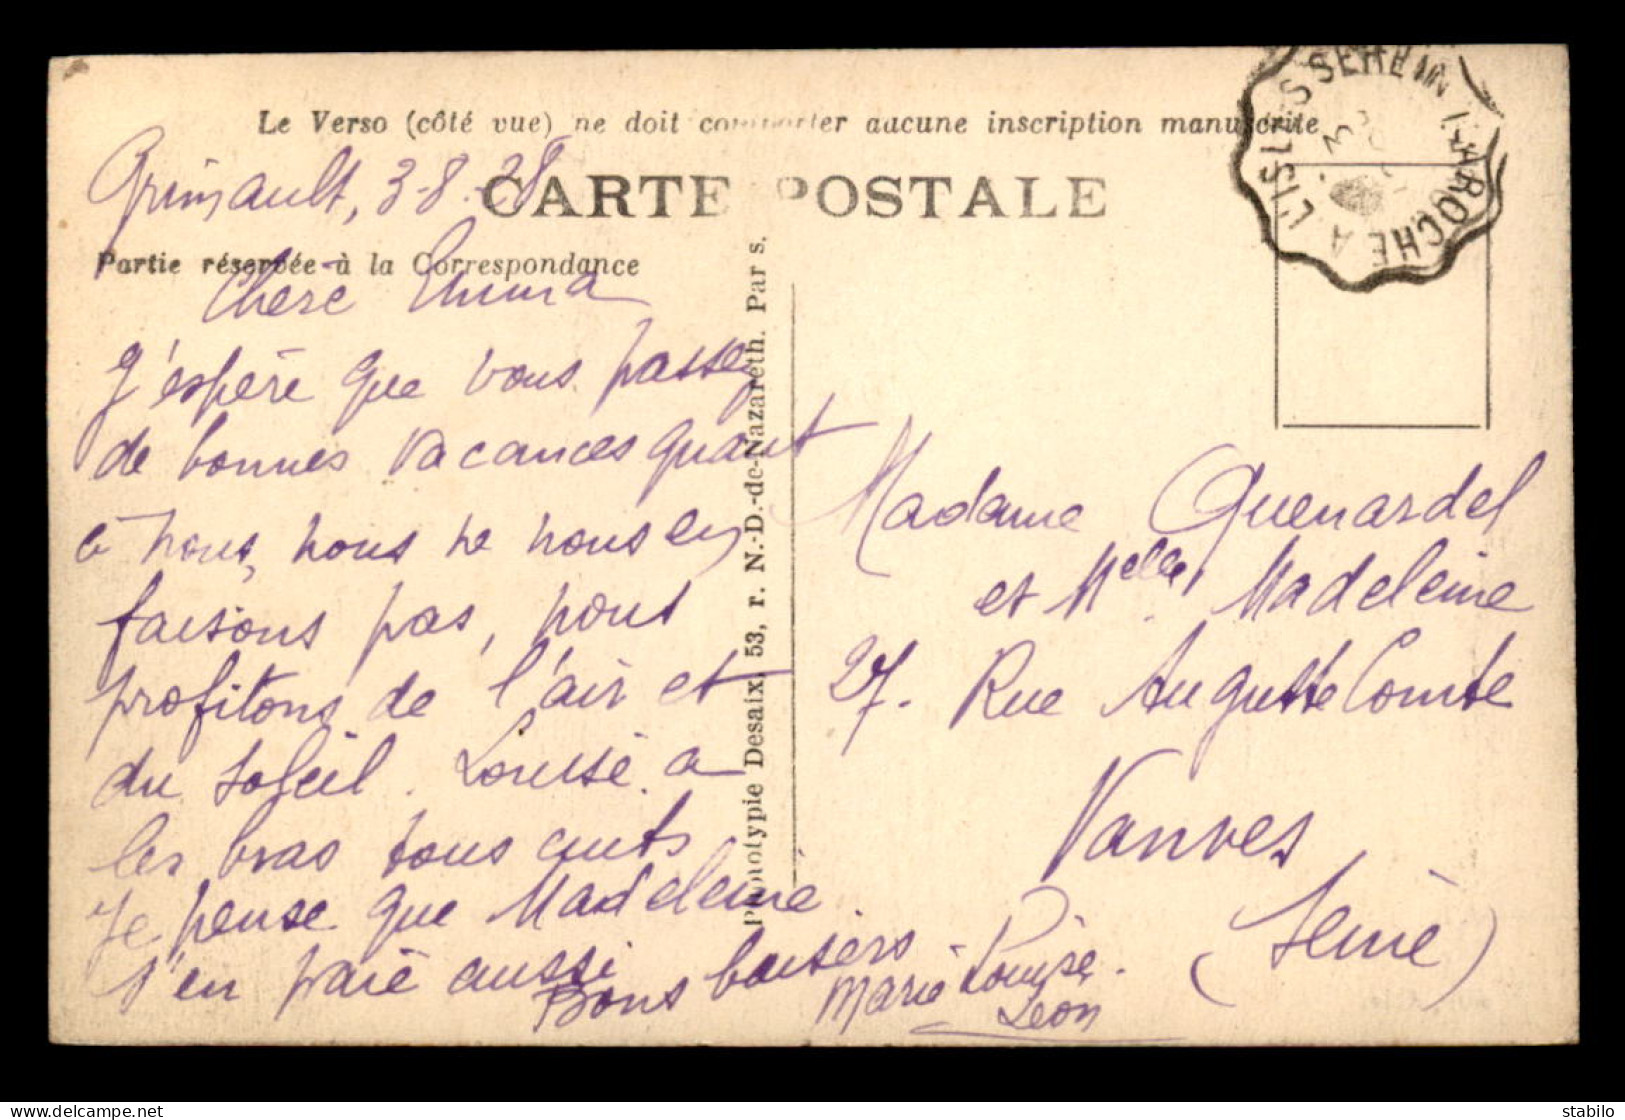 Le Verso (côté vue) ne doit comporter aucune inscription manuscrite
CARTE POSTALE
Grimault, 3-8-28
Partie réservée à la Correspondance
Chère Emma
J'espère que vous passez
de bonnes vacances quant
à nous, nous ne nous en
faisons pas, nous
profitons de l'air et
du soleil. Louise a
les bras tous cuits
Je pense que Madeleine
s'en paie aussi
Bons baisers
Marie Louise.
Léon
Phototypie Desaix, 53, r. N.-D.-de-Nazareth. Paris.
LAROCHE A L'ISLE S SEREIN
Madame Quenardel
et Melle Madeleine
27. Rue Auguste Comte
Vanves
(Seine)
stabilo